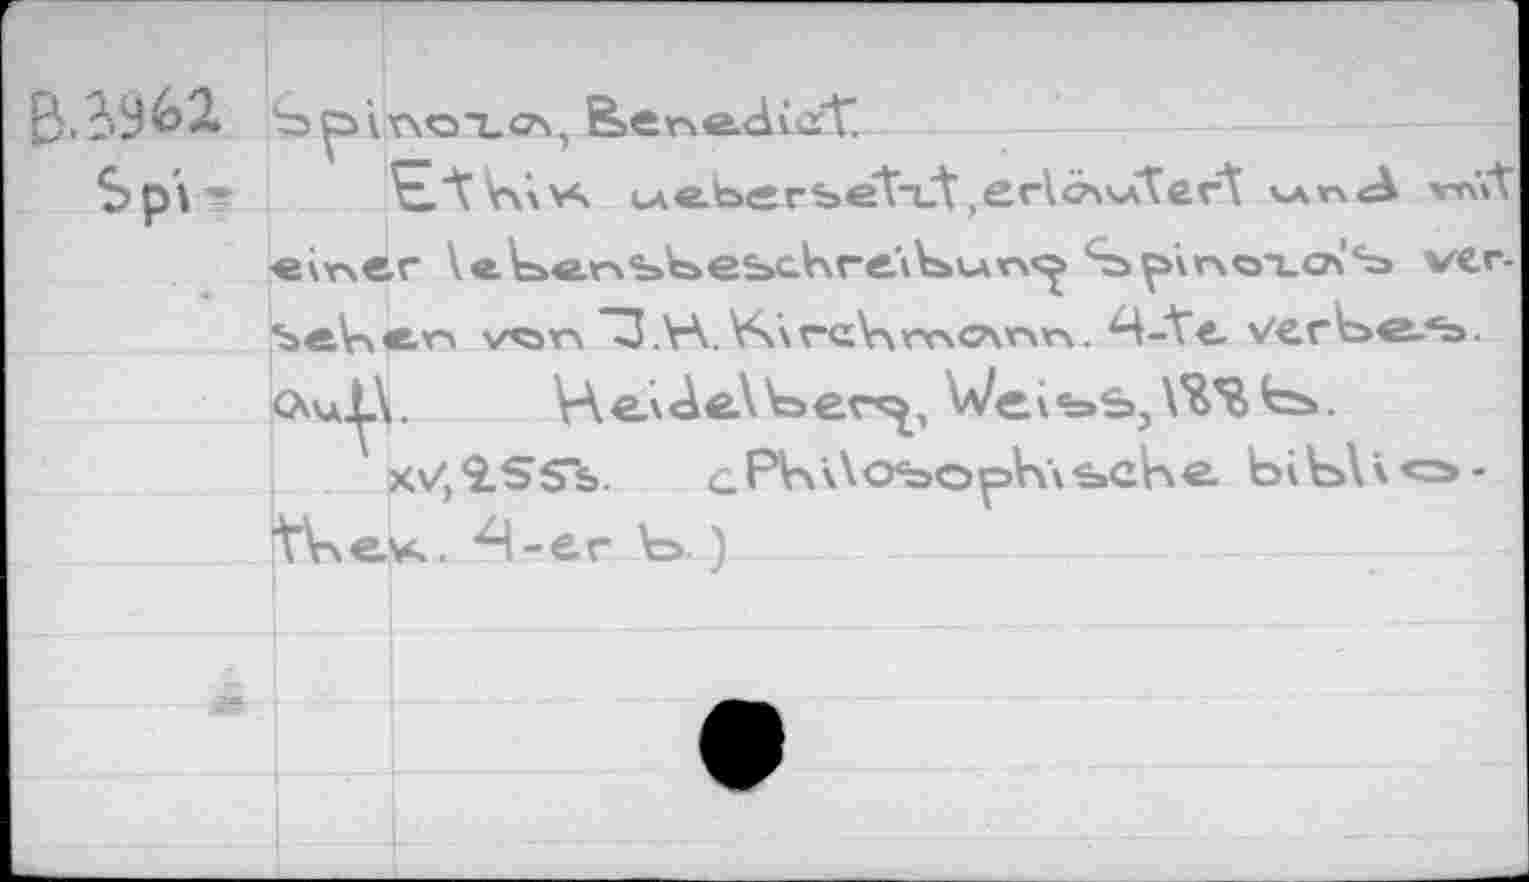 B.3962 Spinoza, Benedict.
Spi- Ethik uebersetzt, erläutert und mit
einer lebensbeschreibung Spinoza's ver-
sehen von J.H. Kirchmann. 4-te verbes.
aufl. Heidelberg, Weiss, 1886.
xv, 255s. (Philosophische biblio-
thek. 4-er b.)